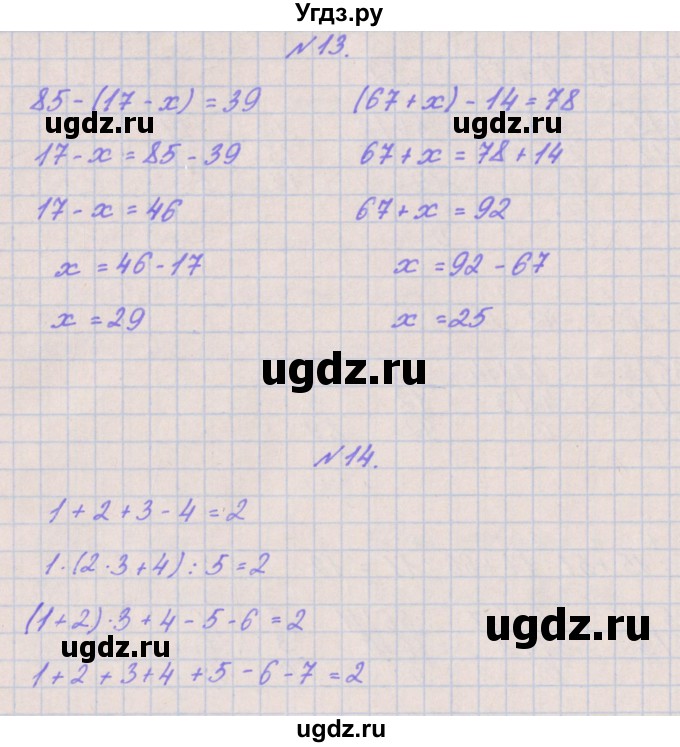 Угдз.ру
N13.
85-(17-x)=39
(67+x)-14=78
ugdz.ru
ugdz.ru
17-x=85-39
67+x=78+14
17-x=46
67+x=92
x=46-17
x=92-67
x=29
x=25
ugdz.ru
N14.
1+2+3-4=2
1·(2·3+4):5=2
(1+2)·3+4-5-6=2
ugdz.ru
ugdz.ru
1+2+3+4+5-6-7=2
ugdz.ru